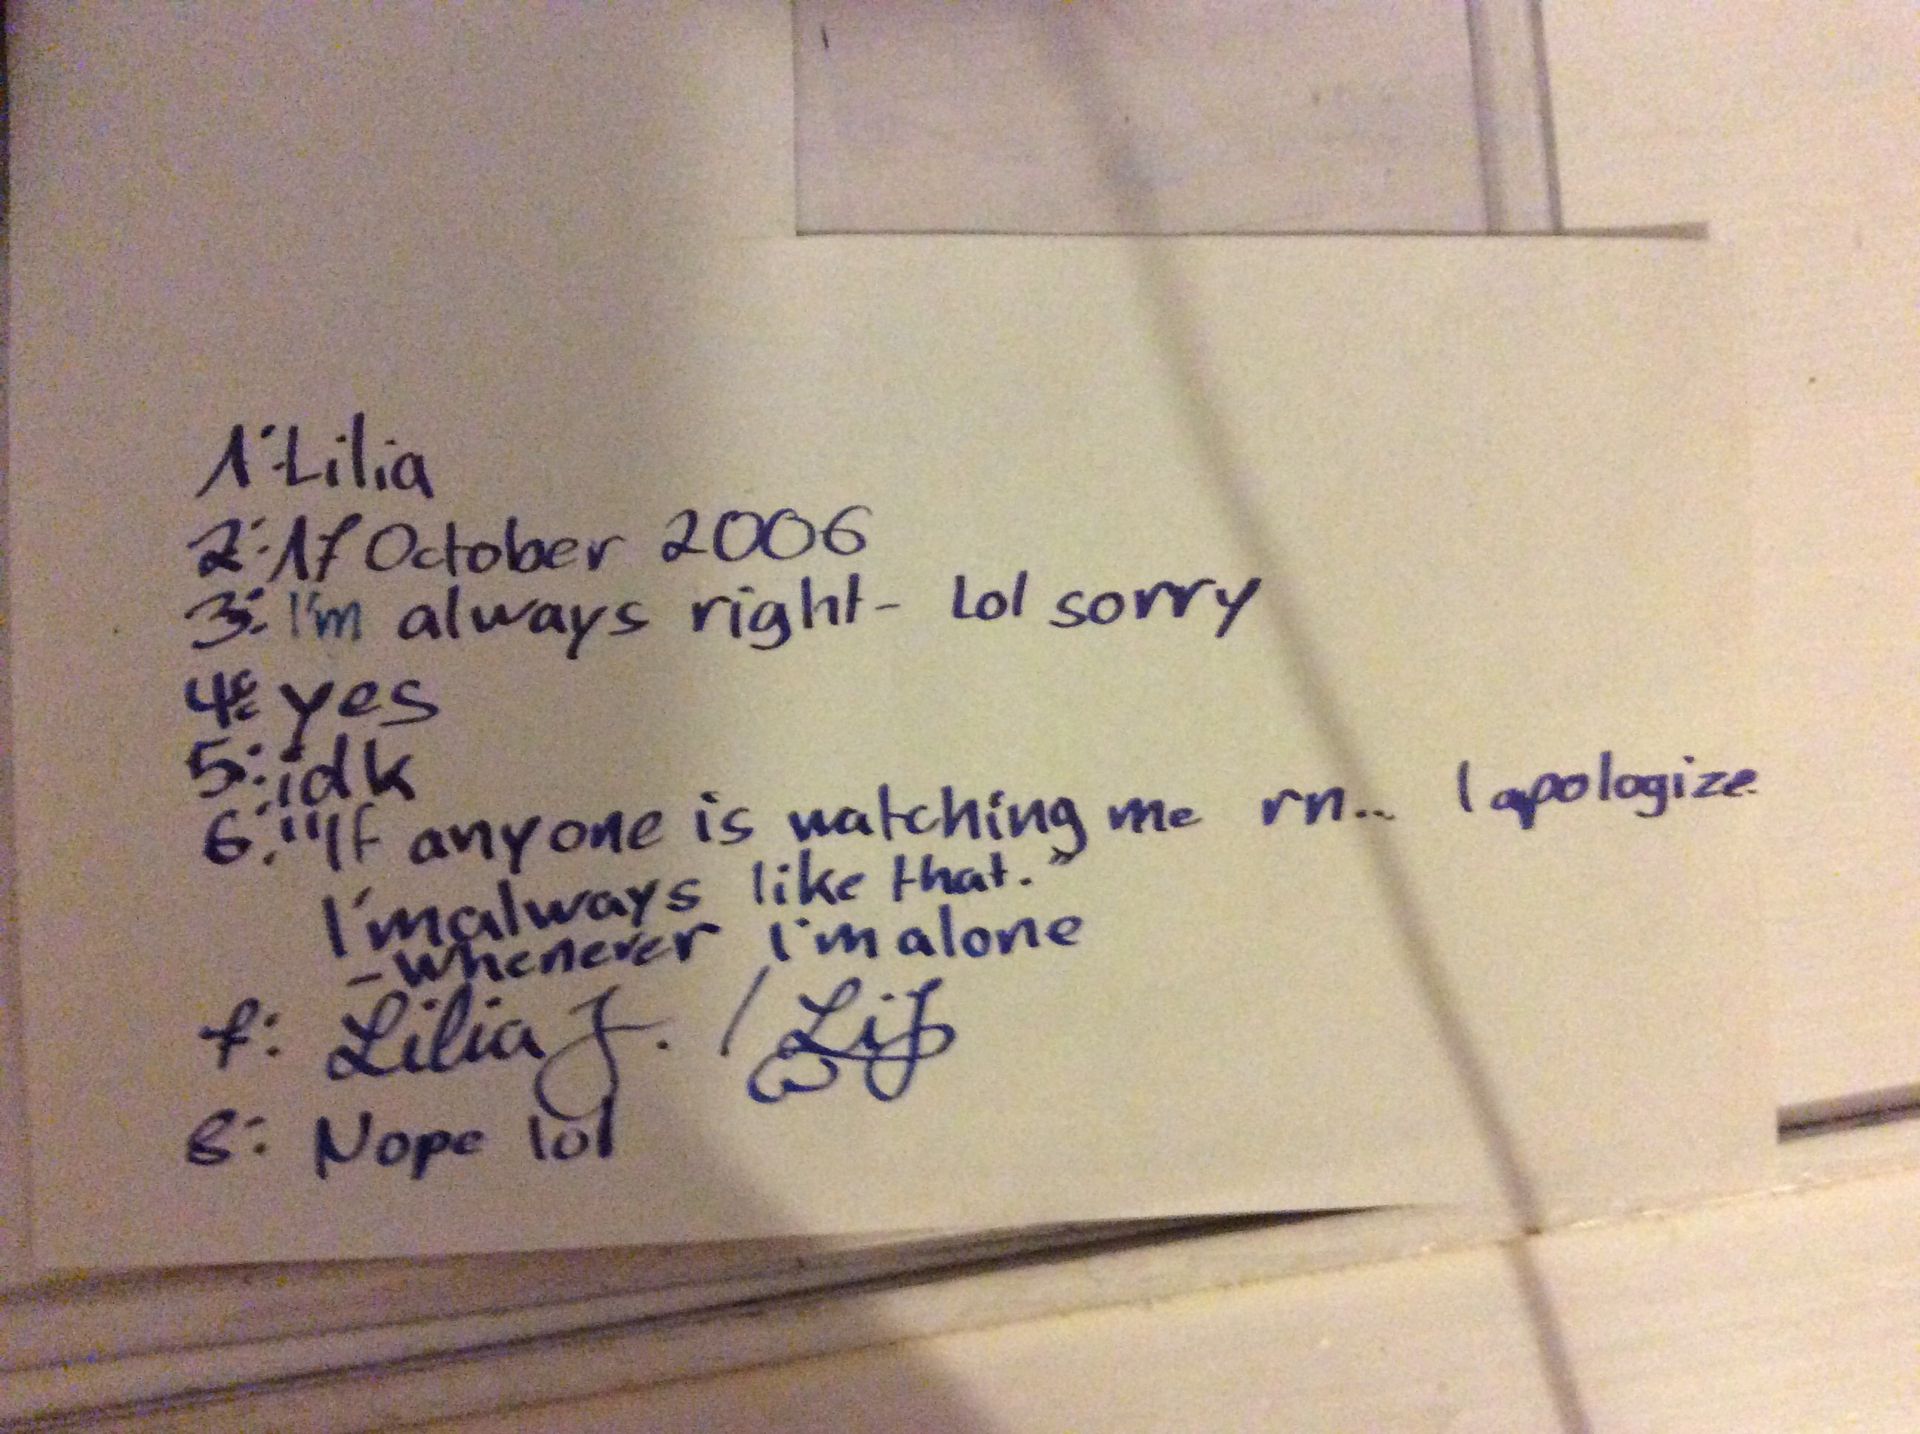 1: Lilia
2: 17 October 2006
3: I'm always right- Lol sorry
4: yes
5: idk
6: "If anyone is watching me rn... I apologize.
I'm always like that."
- whenever I'm alone
7: Lilia J. / LiJ
8: Nope lol